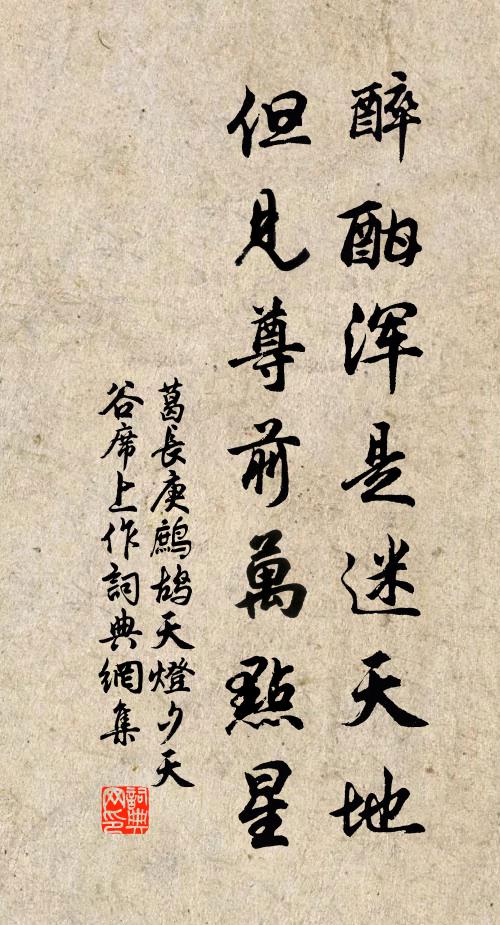 醉酣浑是迷天地
但見尊前萬點星
葛長庚鷓鴣天燈夕天
谷席上作詞典網集
詞典网印